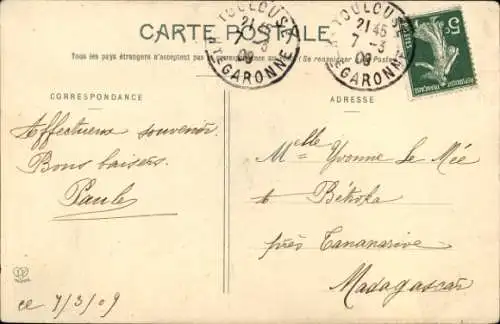 CARTE POSTALE
Tous les pays étrangers n'acceptent pas
(Se renseigner
CORRESPONDANCE
ADRESSE
TOULOUSE
21 45
7 - 3
09
HTE GARONNE
TOULOUSE
21 45
7 - 3
09
HTE GARONNE
5c
Affectueux souvenir.
Bons baisers.
Paule
ce 7/3/09
Melle Yvonne Le Mée
à
près Tananarive
Madagascar